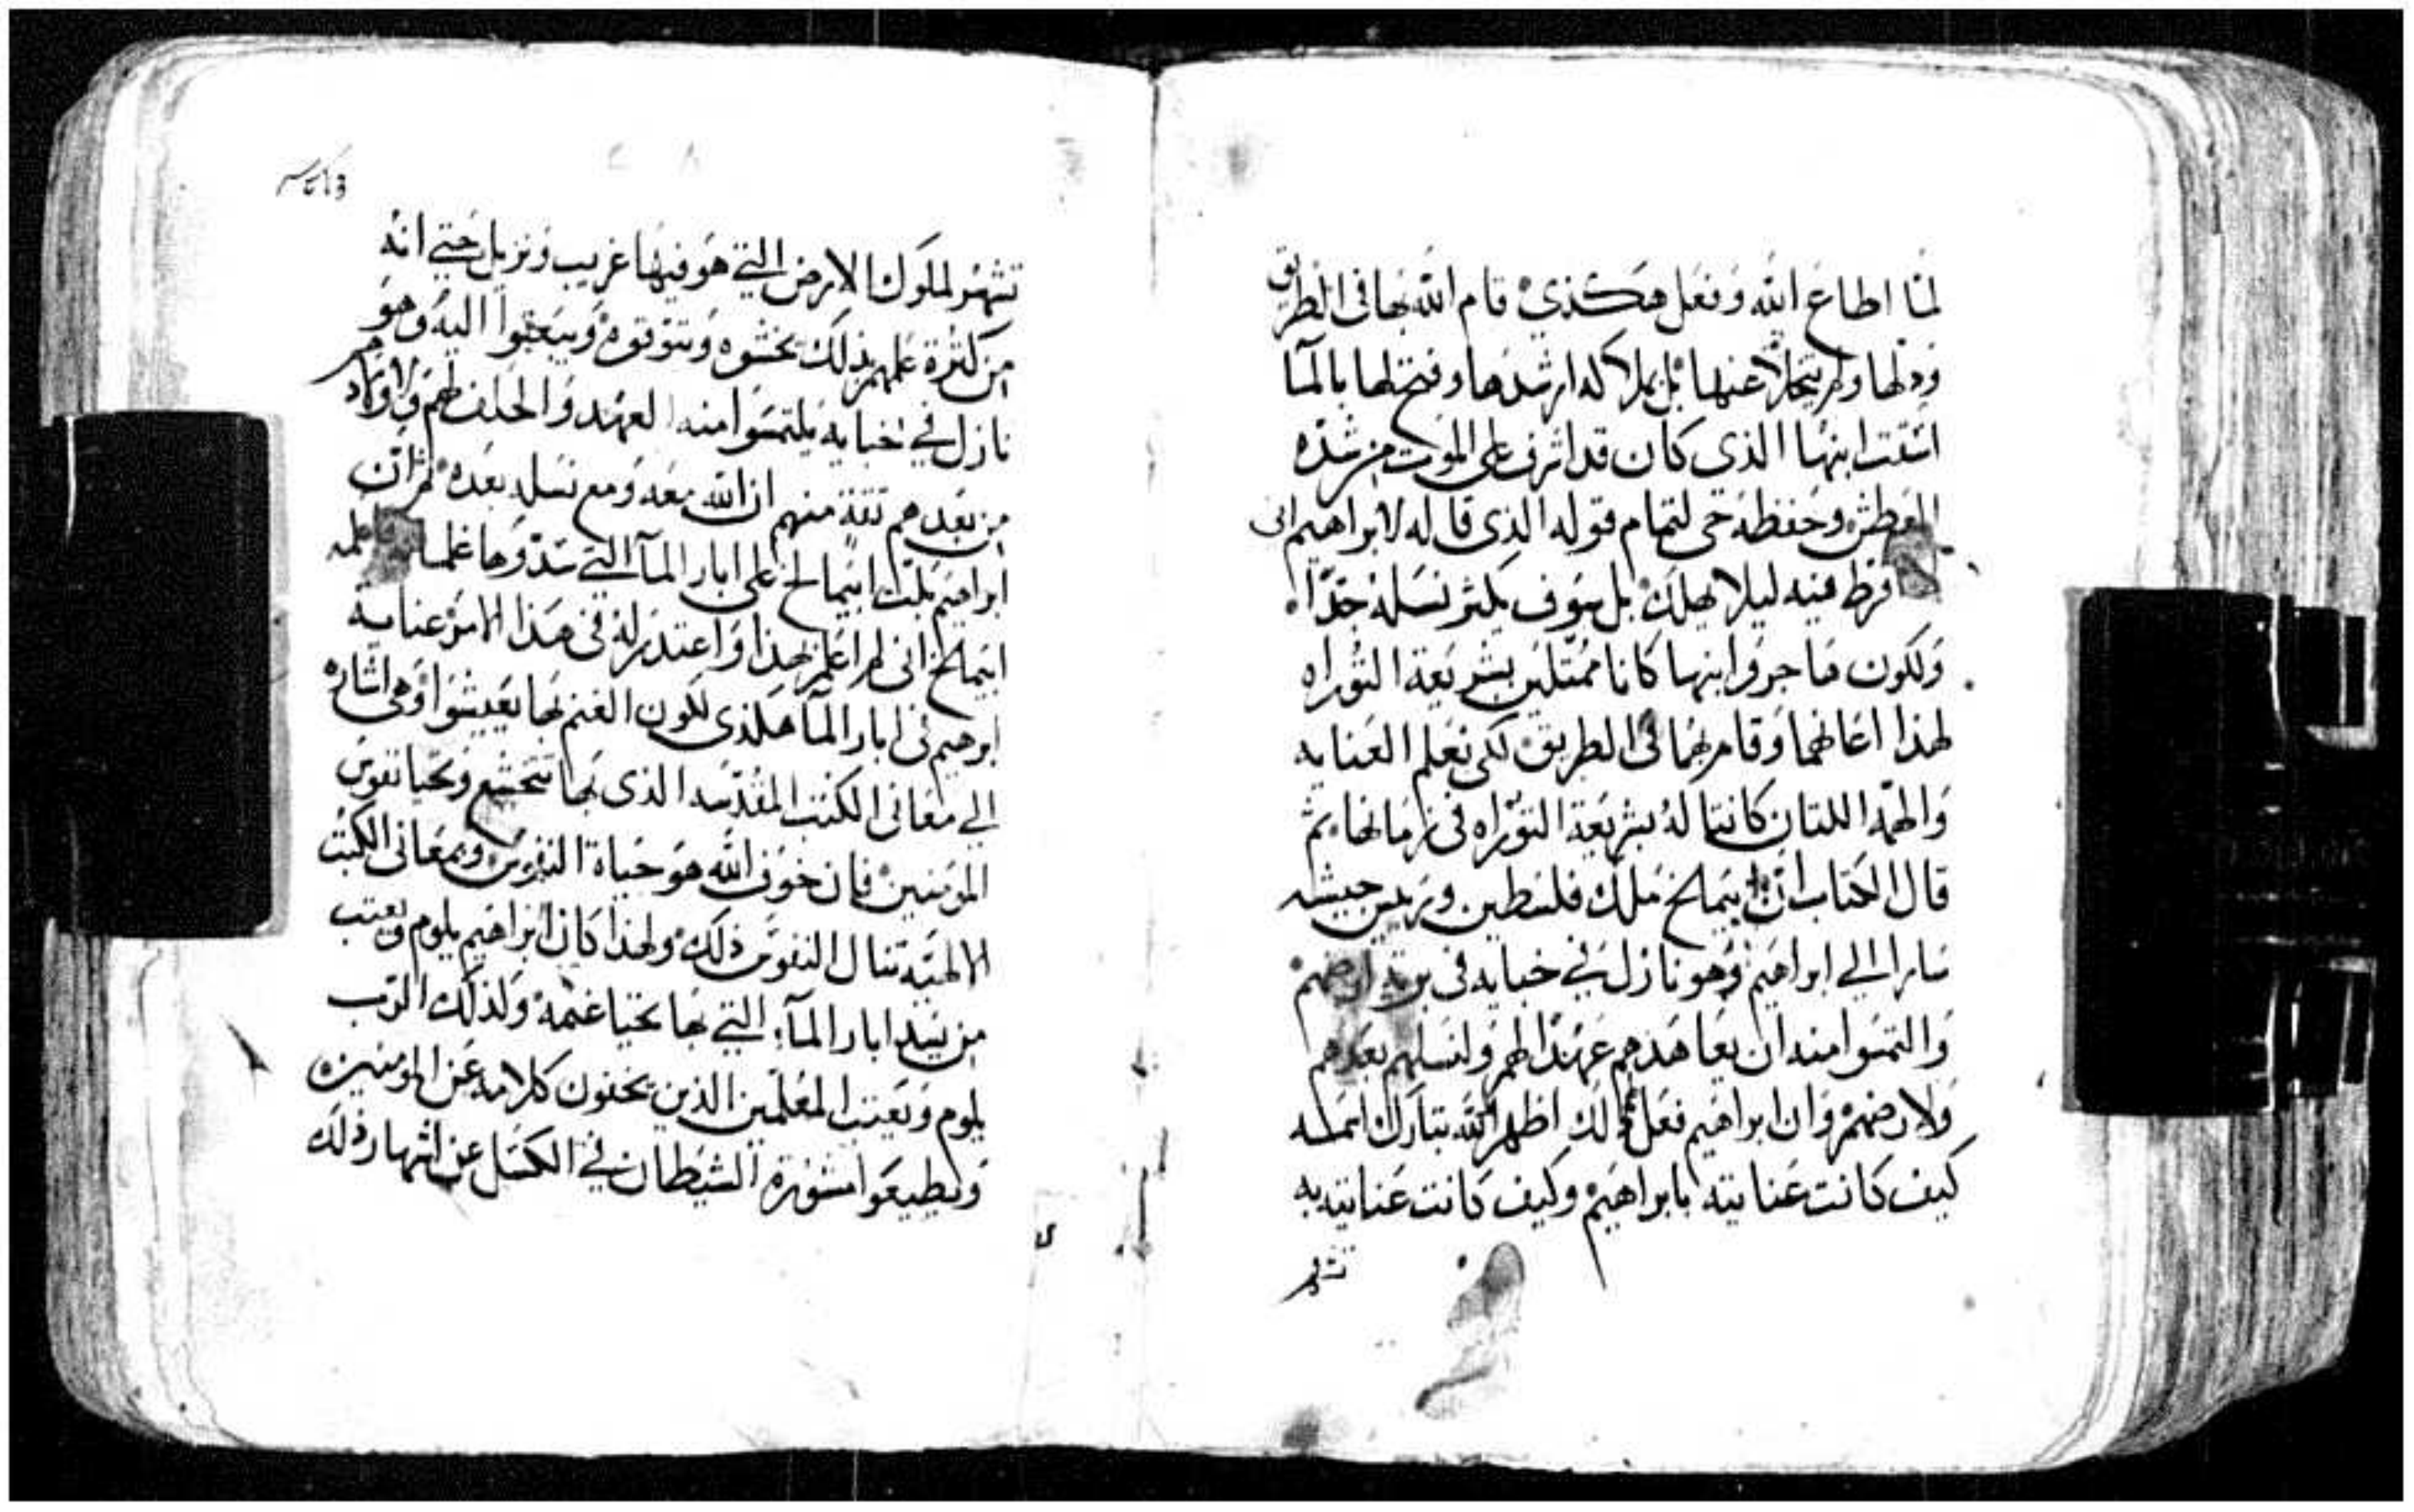 لما اطاع الله وفعل هكذي قام الله بها في الطريق
ودلها ولم يتخلا عنها بل بملاكه ارشدها وفتح لها بالما
اسقت ابنها الذي كان قد اشرف على الموت من شده
العطش وحفظه حى لتمام قوله الذي قاله لابراهيم انى
فرط فيه ليلا يهلك بل سوف يكثر نسله جدا
ولكون هاجر وابنها كانا ممتثلين بشريعة التوراه
لهذا اعانهما وقام بهما في الطريق لكي نعلم العنايه
والهمه اللتان كانتا له بشريعة التوراه في زمانها ثم
قال الكتاب ان ابيمالخ ملك فلسطين وريس جيشه
سارا الي ابراهيم وهو نازل في خبايه في برية ارضهم
والتمسوا منه ان يعاهدهم عهدا لهم ولنسلهم بعدهم
ولارضهم وان ابراهيم فعل ذلك اظهر الله تبارك اسمه
كيف كانت عنايته بابراهيم وكيف كانت عنايته به
تشهر
تشهر لملوك الارض التي هو فيها غريب ونزيل حتي انه
من كثرة علمهم بذلك يخشوه ويتوقوه ويبعثوا اليه وهو
نازل في اخبايه يلتمسوا منه العهد والحلف لهم ولاولادهم
من بعدهم ثقة منهم ان الله معه ومع نسله بعده ثم ان
ابراهيم بكت ابيمالخ على ابار الما التي سدوها غلمانه
ابيمالخ انى لم اعلم بهذا واعتذر له في هذا الامر عناية
ابرهيم في ابار الما هكذي لكون الغنم بها يعيشوا وهي اشاره
الي معاني الكتب المقدسه الذي بها تتخشع وتحيا نفوس
المومنين فان خوف الله هو حياة النفوس وبمعاني الكتب
الالهيه تنال النفوس ذلك ولهذا كان ابراهيم يلوم ويعتب
من يسد ابار الما التي بها تحيا غنمه ولذلك الرب
يلوم ويعتب المعلمين الذين يخفون كلامه عن المومنين
ويطيعوا مشورة الشيطان في الكسل عن اشهار ذلك